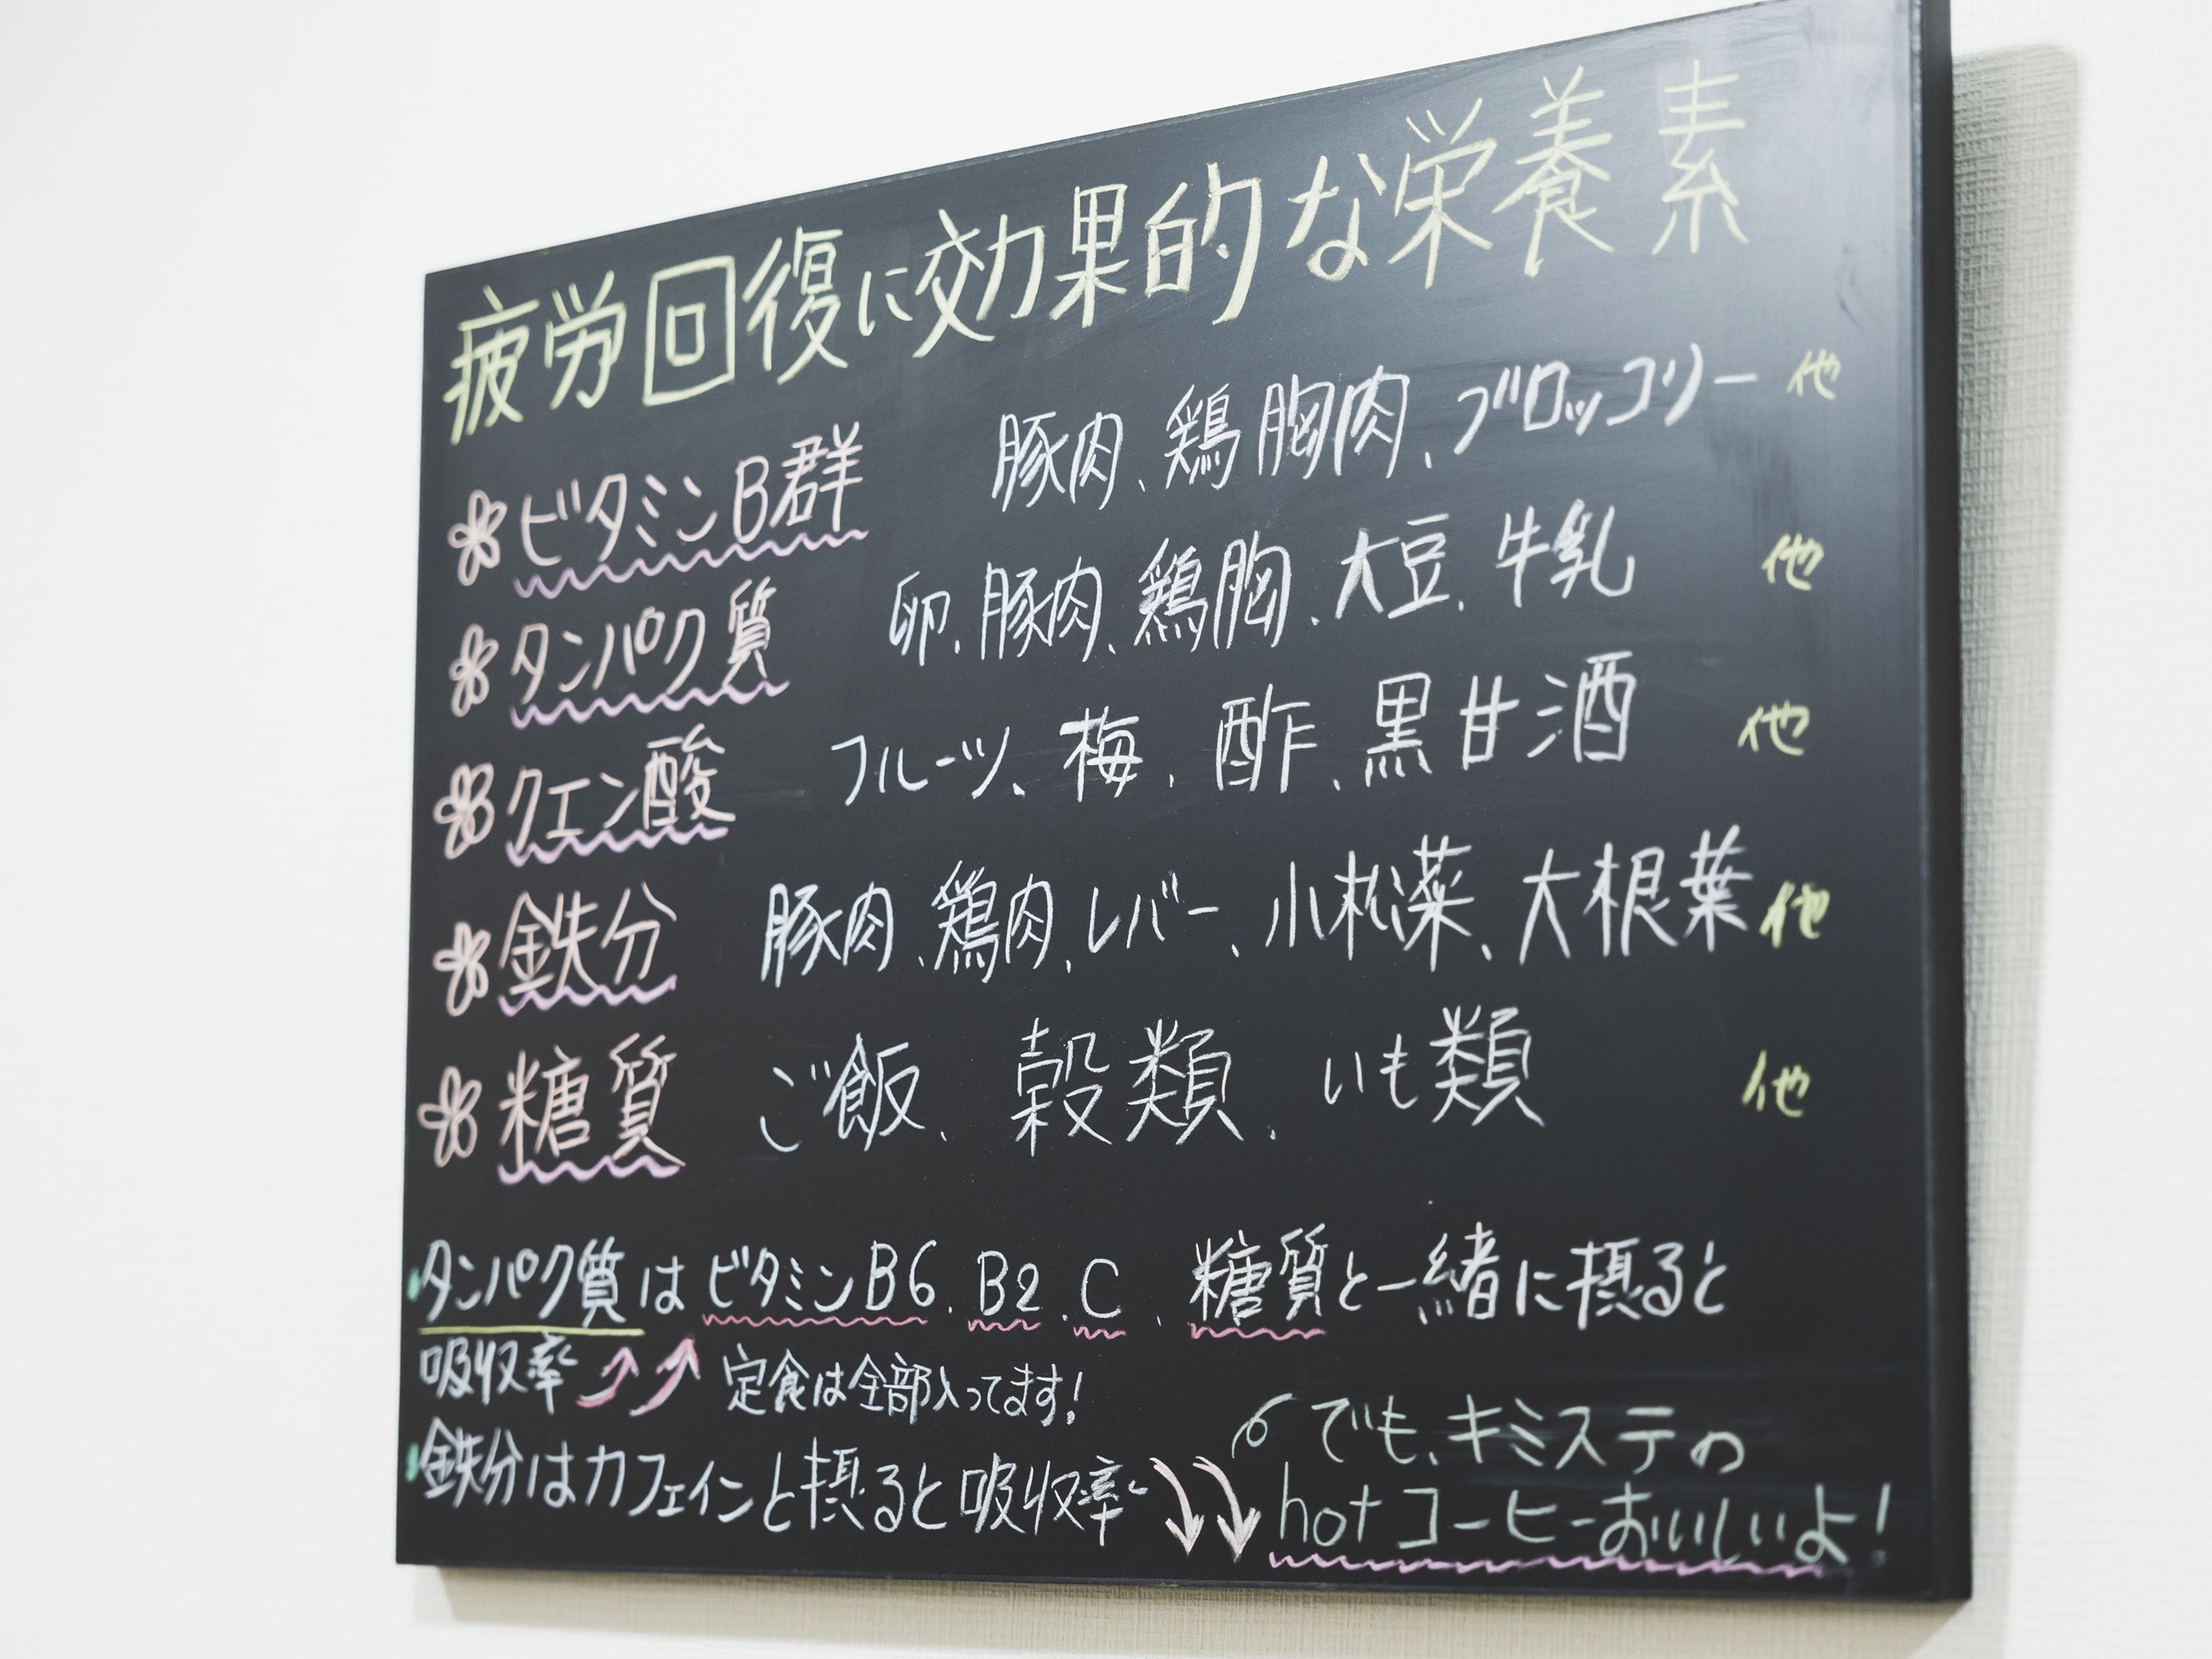 疲労回復に効果的な栄養素
ビタミンB群 豚肉、鶏胸肉、ブロッコリー 他
タンパク質 卵、豚肉、鶏胸、大豆、牛乳 他
クエン酸 フルーツ、梅、酢、黒甘酒 他
鉄分 豚肉、鶏肉、レバー、小松菜、大根葉 他
糖質 ご飯、穀類、いも類 他
・タンパク質はビタミンB6、B2、C、糖質と一緒に摂ると
吸収率↗↗ 定食は全部入ってます!
・鉄分はカフェインと摂ると吸収率↓↓
でも、キミステの
hotコーヒーおいしいよ!